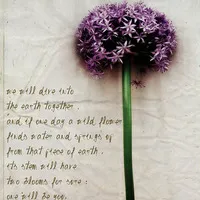 we will dive into
the earth together.
and if one day a wild flower
finds water and springs up
from that piece of earth,
its stem will have
two blooms for sure:
one will be you,